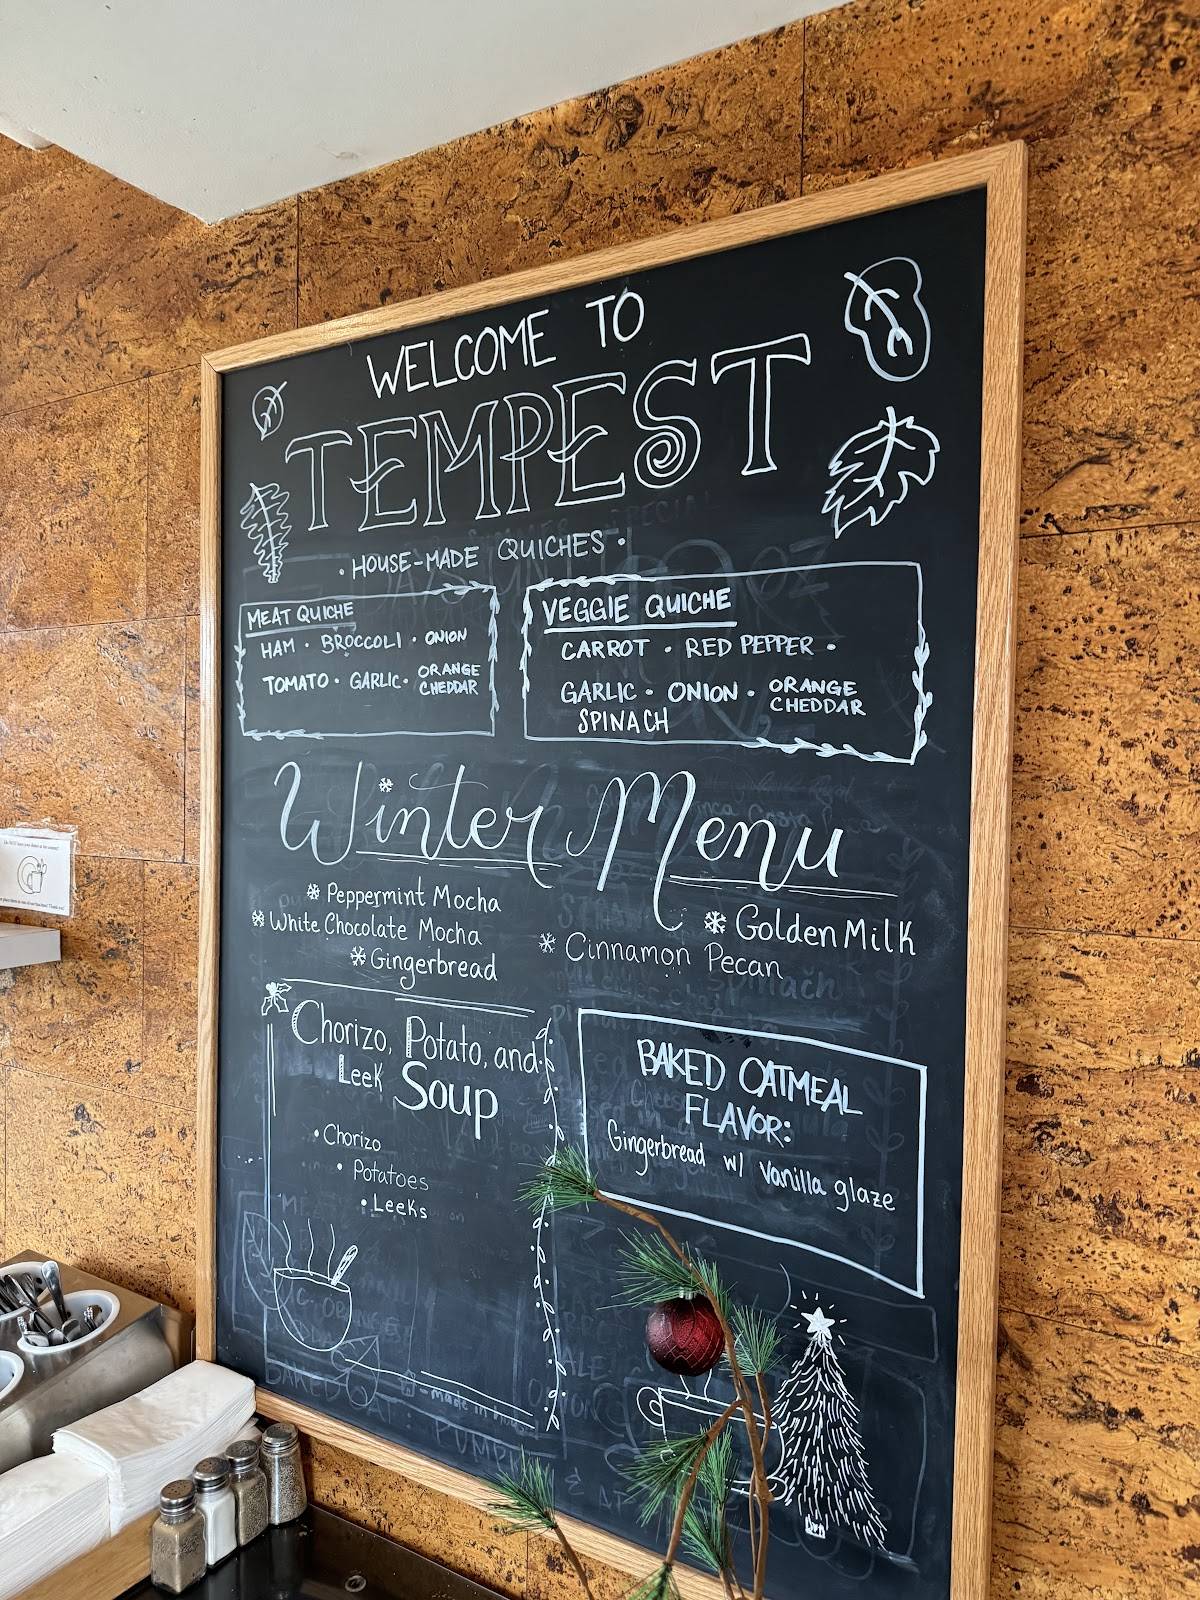 WELCOME TO
TEMPEST
• HOUSE-MADE QUICHES •
MEAT QUICHE
HAM • BROCCOLI • ONION
TOMATO • GARLIC • ORANGE CHEDDAR
VEGGIE QUICHE
CARROT • RED PEPPER •
GARLIC • ONION • ORANGE CHEDDAR
SPINACH
Winter Menu
Peppermint Mocha
White Chocolate Mocha
Gingerbread
Golden Milk
Cinnamon Pecan
Chorizo, Potato, and
Leek Soup
• Chorizo
• Potatoes
• Leeks
BAKED OATMEAL
FLAVOR:
Gingerbread w/ vanilla glaze